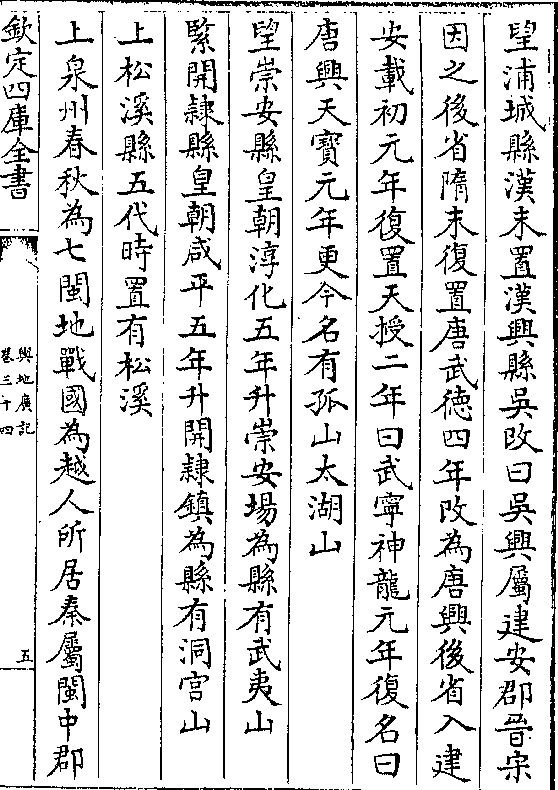 望浦城縣漢末置漢興縣吳改曰吳興屬建安郡晉宋
因之後省隋末復置唐武德四年改為唐興後省入建
安載初元年復置天授二年曰武寧神龍元年復名曰
唐興天寶元年更今名有孤山太湖山
望崇安縣皇朝淳化五年升崇安場為縣有武夷山
緊開隷縣皇朝咸平五年升開隷鎮為縣有洞宫山
上松溪縣五代時置有松溪
上泉州春秋為七閩地戰國為越人所居秦屬閩中郡
欽定四庫全書
輿地廣記
卷三十四
五